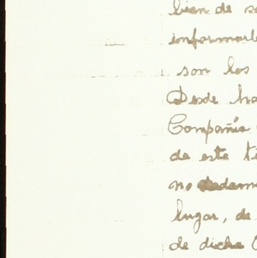 bien de
informarle
son los
Desde
Compañía
de este
no
lugar, de
de dicha